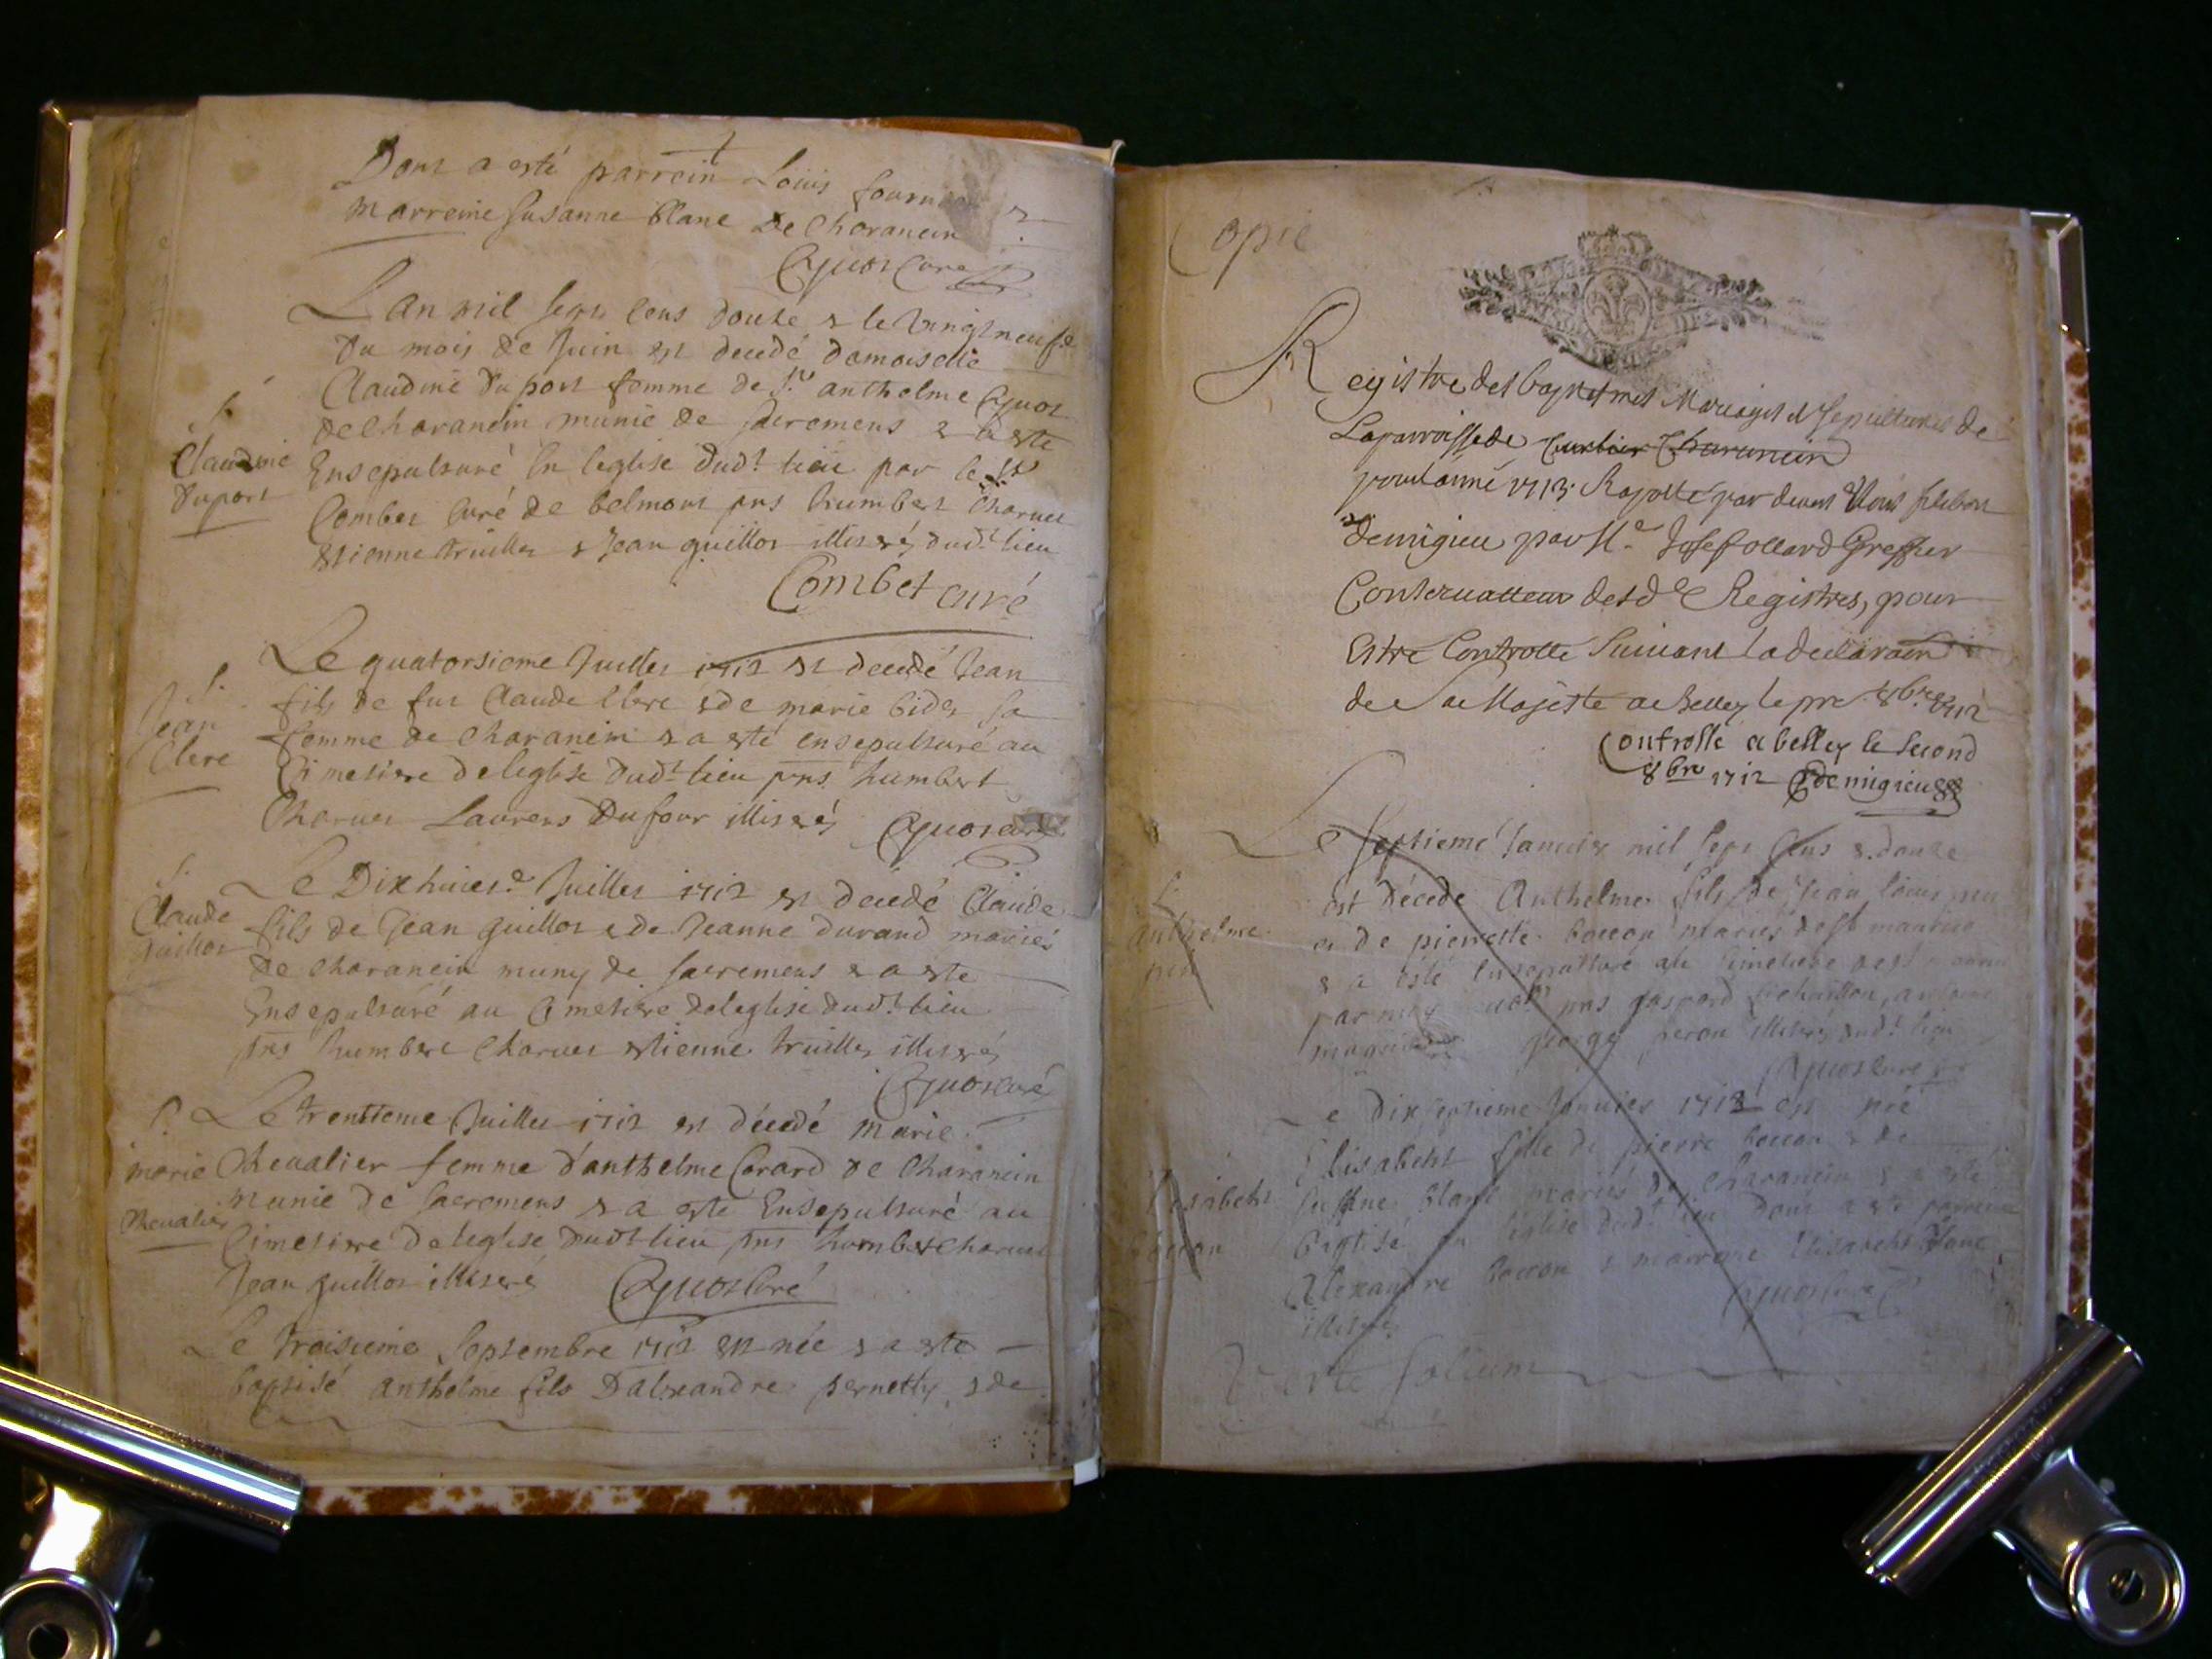 Dont a esté parrein Louis
marreine Susanne blanc De Charancin
Cyuot Curé
L'an mil sept cens douze & le vingtneufe
Du mois de Juin est decedé damoiselle
Claudine Duport femme de Sr anthelme Cyuot
De Charancin munie de sacremens & a esté
Ensepulturé En leglise dudt lieu par le Sr
Combet Curé de belmont pns humbert Charuet
Estienne truillet & Jean guillot illiteré dudt lieu
Combet curé
S.
Claudine
Duport
Le quatorsieme Juillet 1712 est decedé Jean
fils de fut Claude Clerc & de marie bidet sa
femme de Charancin & a esté ensepulturé au
Cimetiere de leglise dudt lieu pns humbert
Charuet Laurens Dufour illiteré Cyuot curé
S.
Jean
Clerc
Le Dixhuict.e Juillet 1712 est decedé Claude
fils de Jean guillot & de Jeanne durand mariés
de Charancin muny de sacremens & a esté
Ensepulturé au Cimetiere de leglise dudt lieu
pns humbert Charuet estienne truillet illiteré
Cyuot curé
S.
Claude
guillot
Le trentieme Juillet 1712 est décedé marie
Chevalier femme d'anthelme Corard de Charancin
munie de sacremens & a esté Ensepulturé au
Cimetiere de leglise dudt lieu pns humbert Charuet
Jean guillot illiteré Cyuot Curé
S.
marie
Chevalier
Le troisieme Septembre 1712 est née & a esté
baptisé anthelme fils D'alexandre pernetty & de
Copie
Registre des baptesmes Mariages et sepultures de
La parroisse de Charancin
pour lannée 1713. par devant Nous
demigieu par Me Josef ollard Greffier
Conservatteur desd. Registres, pour
Estre Controlle Suivant la declaraon
de Sa Majeste a Belley le pr 8bre 1712
Controllé a belley le second
8bre 1712 demigieu
Le septieme Janvier mil sept cens & douze
est décedé Anthelme fils de Jean louis
et de pierrette boccon mariés de St martin
& a esté Ensepulturé au Cimetiere de St
par moy pns gaspard
george peron illiteré dudt lieu
Cyuot Curé
anthelme
Le Dixseptieme Janvier 1712 est née
Elisabeht fille de pierre boccon & de
Susanne blanc mariés de Charancin & a esté
baptisé en leglise dudt lieu dont a esté parrein
Alexandre boccon & marreine Elisabeht
illiteré Cyuot Curé
Elisabeht
boccon
Verte folium